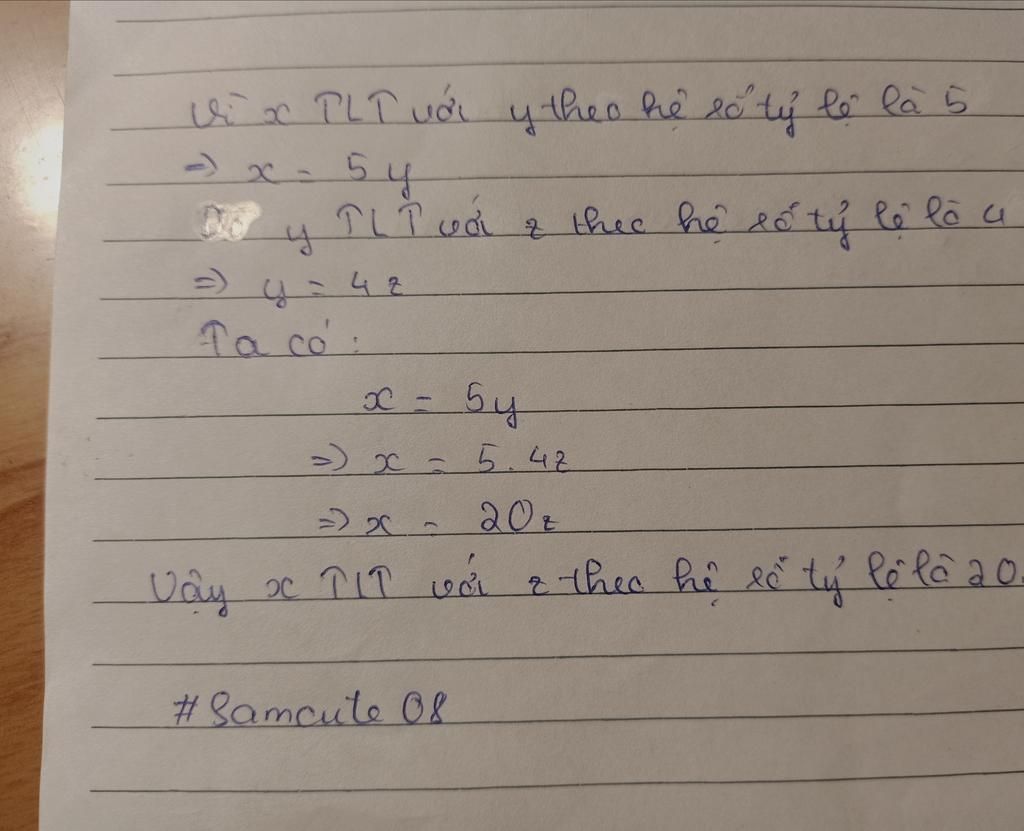 Vì x TLT với y theo hệ số tỷ lệ là 5
=> x = 5y
Do y TLT với z theo hệ số tỷ lệ là 4
=> y = 4z
Ta có:
x = 5y
=> x = 5.4z
=> x = 20z
Vậy x TLT với z theo hệ số tỷ lệ là 20.
#Samcute 08